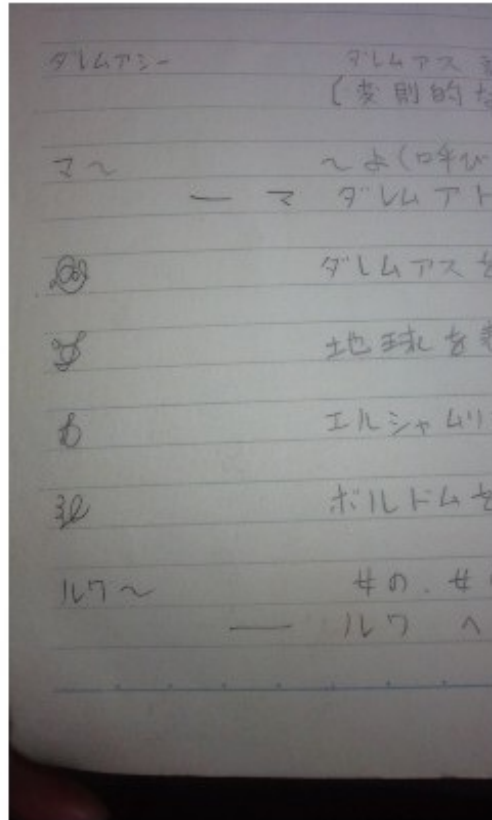 ダレムアシー ダレムアス
(変則的な
マ～ ～よ(呼び
— マ ダレムアト
ダレムアスを
地球を表
エルシャムリ
ボルドムを
ルワ～ 女の、女
— ルワ ヘ